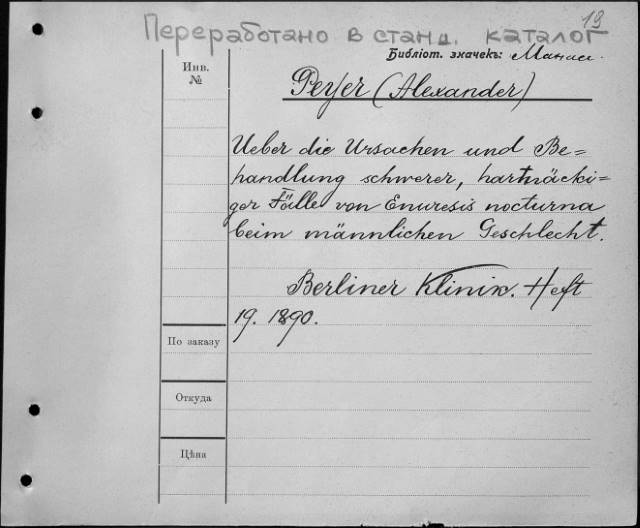 19
Переработано в станд. каталог
Библіот. значекъ:
Инв.
№
Peyer (Alexander)
Ueber die Ursachen und Be=
handlung schwerer, hartnäcki=
ger Fälle von Enuresis nocturna
beim männlichen Geschlecht.
Berliner Klinik. Heft
19. 1890.
По заказу
Откуда
Цѣна